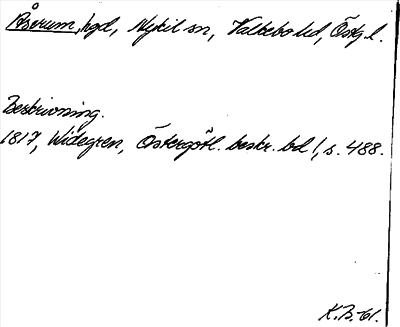 Åserum, hgd, Nykil sn, Valkebo hd, Östg. l.
Beskrivning.
1817, Widegren, Östergötl. beskr. bd 1, s. 488.
K.B. 61.